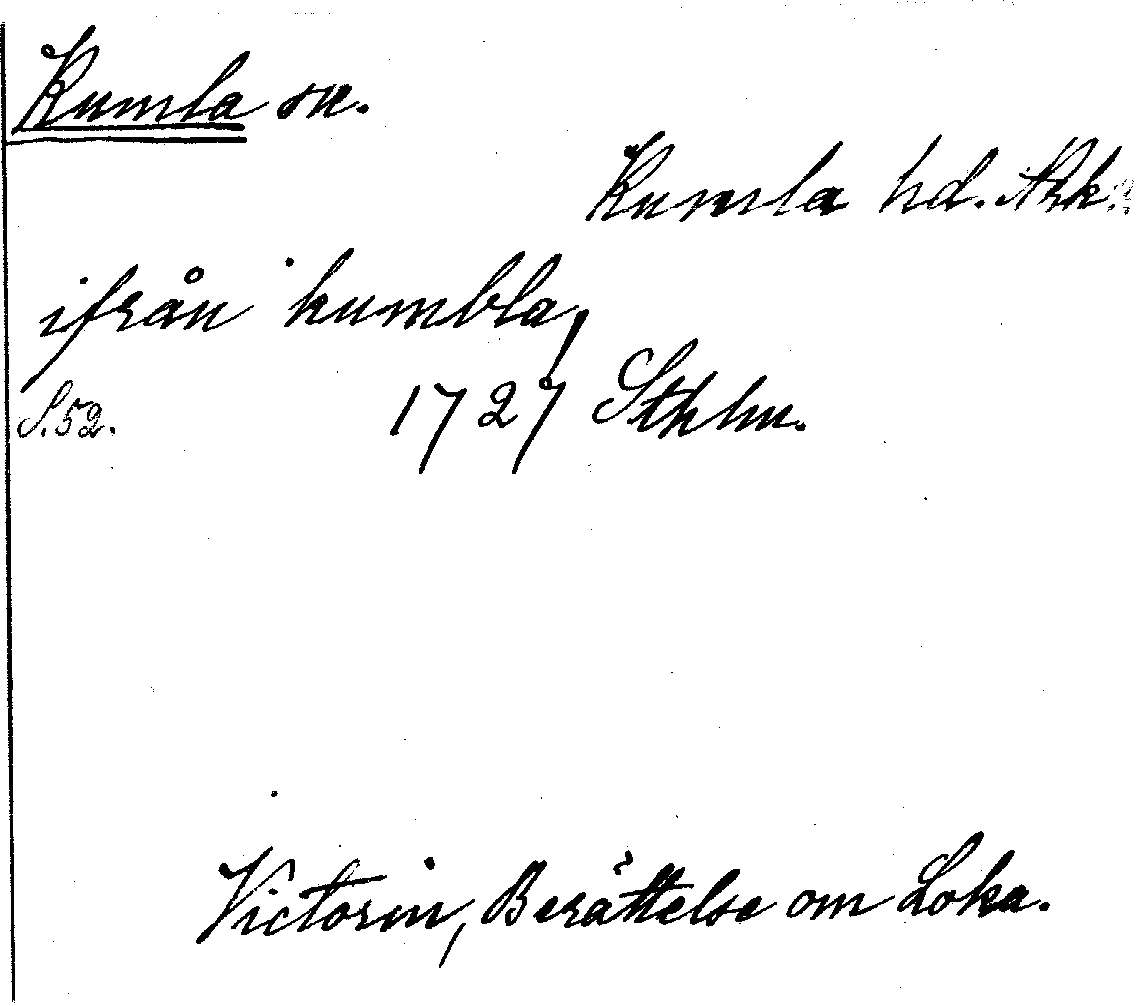 Kumla sn.
Kumla hd. Nrk.
ifrån kumbla,
S. 52. 1727 Sthlm.
Victorin, Berättelse om Loka.